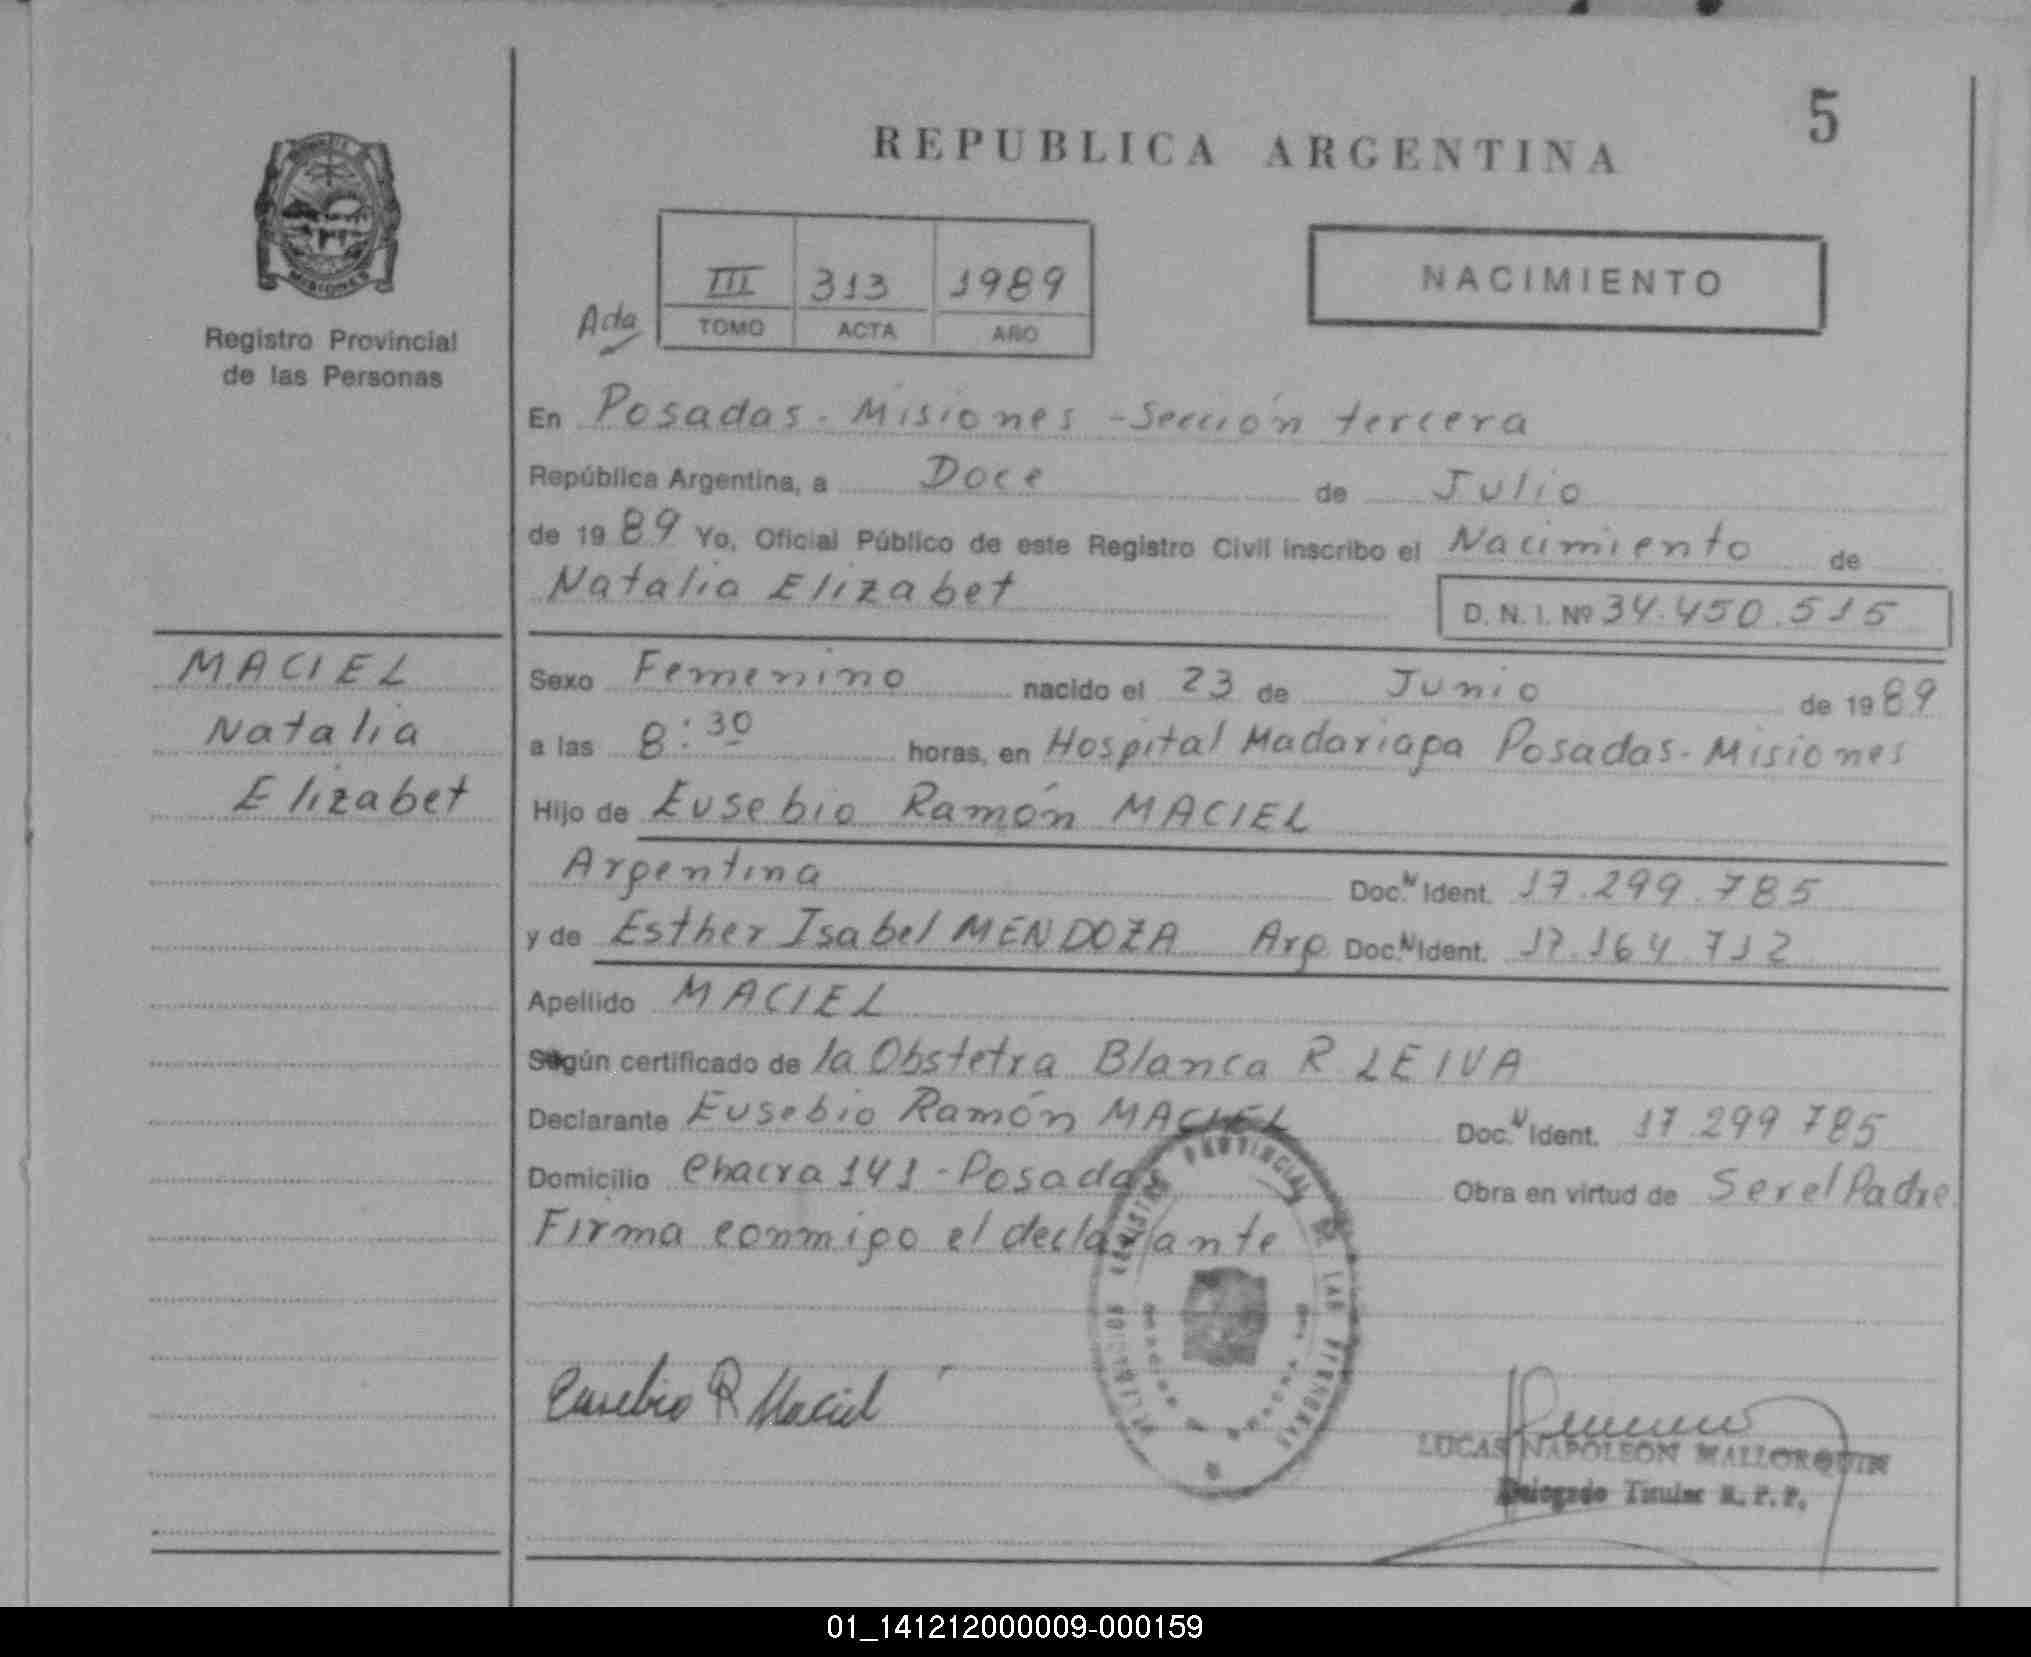 5
REPUBLICA ARGENTINA
MISIONES
Registro Provincial
de las Personas
III 313 1989
TOMO ACTA AÑO
NACIMIENTO
En Posadas - Misiones - Sección tercera
República Argentina, a Doce de Julio
de 1989 Yo, Oficial Público de este Registro Civil inscribo el Nacimiento de
Natalia Elizabet
D. N. I. Nº 34.450.515
MACIEL
Natalia
Elizabet
Sexo Femenino nacido el 23 de Junio de 1989
a las 8:30 horas, en Hospital Madariaga Posadas - Misiones
Hijo de Eusebio Ramón MACIEL
Argentina Doc. N Ident. 17.299.785
y de Esther Isabel MENDOZA Arg. Doc. N Ident. 17.164.712
Apellido MACIEL
Según certificado de la Obstetra Blanca R LEIVA
Declarante Eusebio Ramón MACIEL Doc. N Ident. 17.299 785
Domicilio Chacra 141 - Posadas Obra en virtud de Ser el Padre
Firma conmigo el declarante
REGISTRO PROVINCIAL DE LAS PERSONAS
Eusebio R Maciel
LUCAS NAPOLEON MALLORQUIN
Delegado Titular R. P. P.
01_141212000009-000159